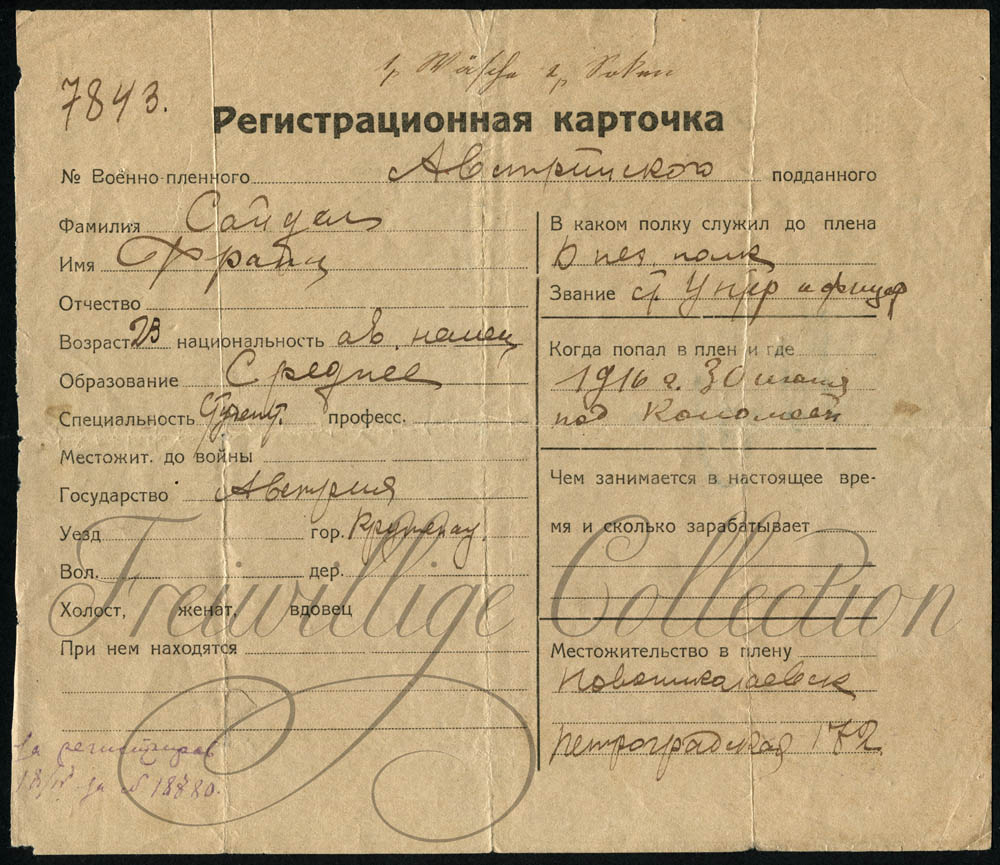 Wäsche
7843.
Регистрационная карточка
№ Военно-пленного Австрийского подданного
Фамилия Сайдель
Имя Франц
Отчество
Возраст 23 национальность ав. немец
Образование Среднее
Специальность Студент. професс.
Местожит. до войны
Государство Австрия
Уезд гор.
Вол. дер.
Холост, женат, вдовец
При нем находятся
В каком полку служил до плена
пех. полк
Звание ст. Унтр офицер
Когда попал в плен и где
1916 г. 30 июня
под Коломеей
Чем занимается в настоящее вре-
мя и сколько зарабатывает
Местожительство в плену
Новониколаевск
Петроградская 172
За регистриров
18/IV за № 18780.
Freiwillige Collection